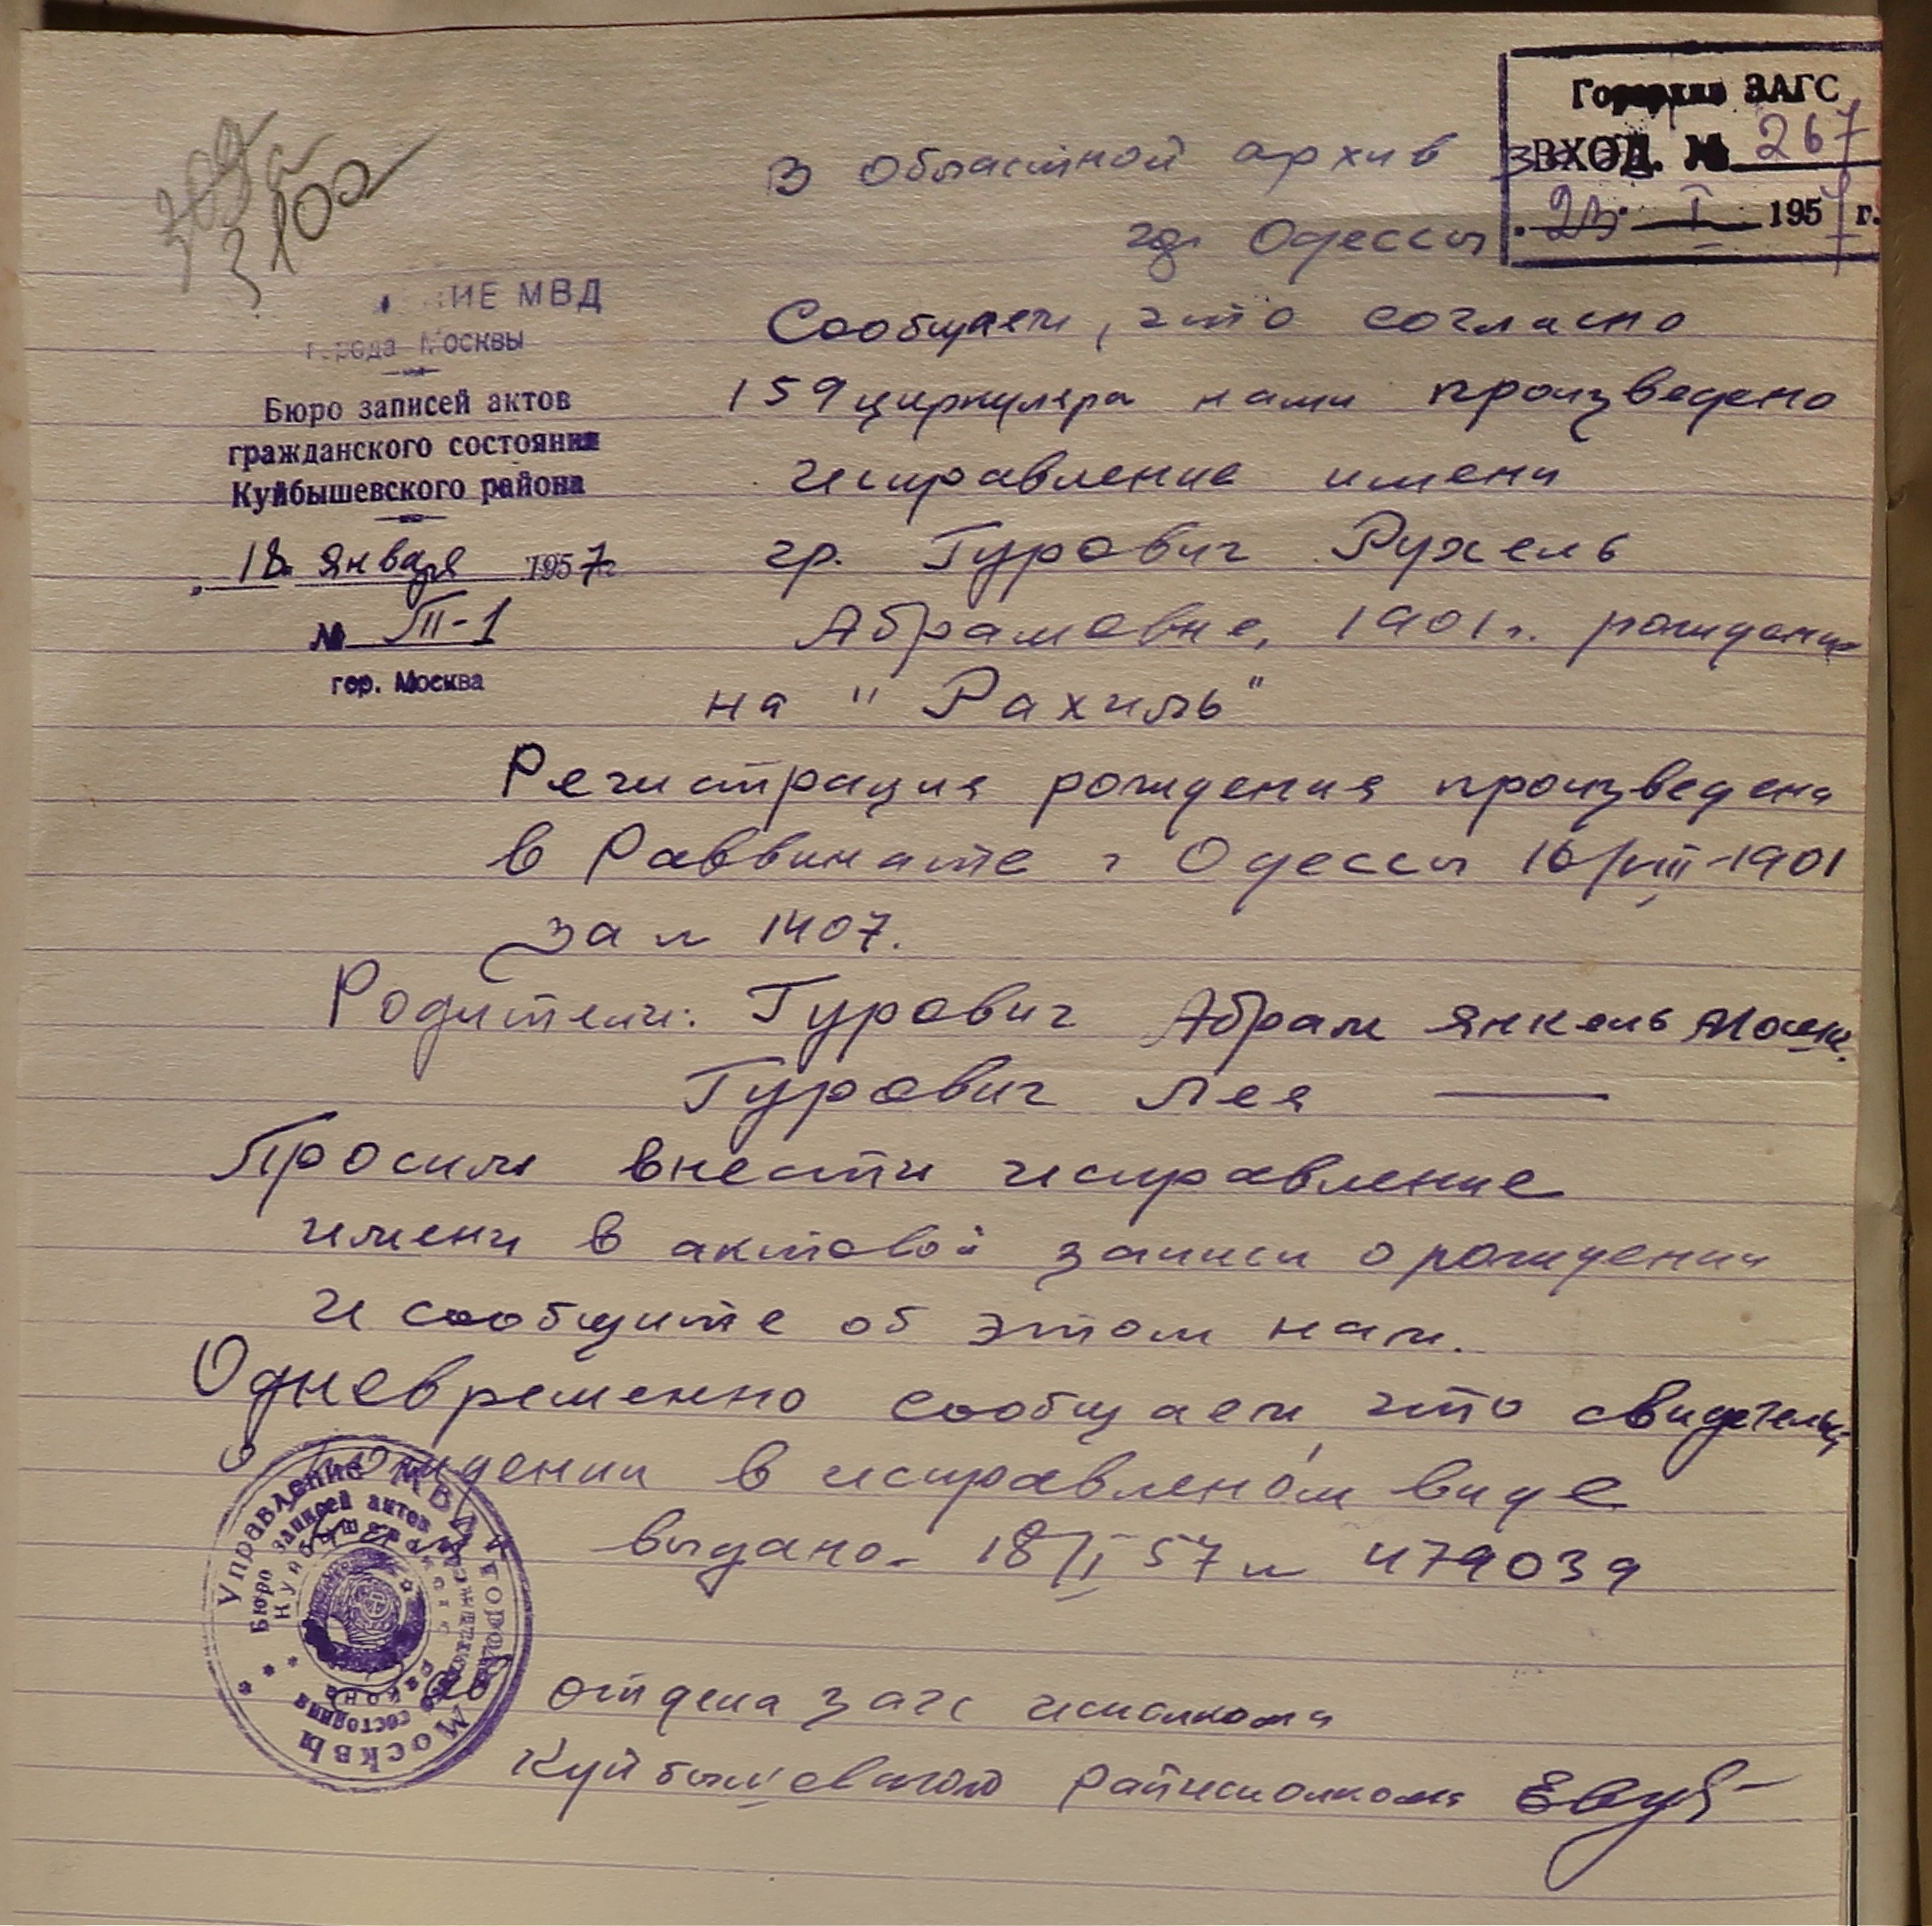 ЗАГС
ВХОД. № 267
23. I 1957 г.
В Областной архив
гор. Одессы
ИЕ МВД
города Москвы
Бюро записей актов
гражданского состояния
Куйбышевского района
18. января 1957 г
№ П-1
гор. Москва
Сообщаем, что согласно
159 циркуляра нами произведено
исправление имени
гр. Гурович Рухель
Абрамовне, 1901 г. рождения
на "Рахиль"
Регистрация рождения произведена
в Раввинате г Одессы 16/VIII-1901
за № 1407.
Родители: Гурович Абрам Янкель Мошк.
Гурович Лея —
Просим внести исправление
имени в актовой записи о рождении
и сообщите об этом нам.
Одневременно сообщаем, что свидетельс.
о рождении в исправленом виде
выдано 18/I 57 № 479039
отдела загс исполкома
Куйбышевского Райисполкома
Управление МВД города Москвы
Бюро записей актов гражданского состояния
Куйбышевского района